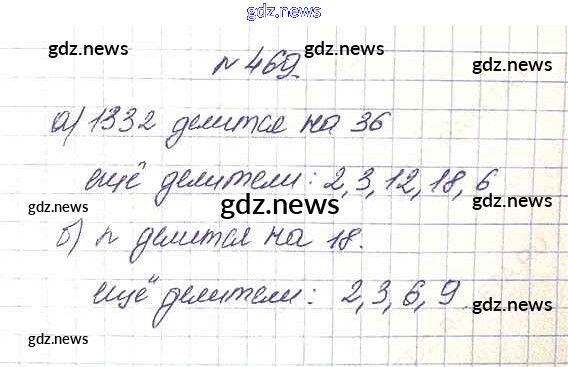 gdz.news
gdz.news gdz.news
№ 469
gdz.news
а) 1332 делится на 36
ещё делители: 2, 3, 12, 18, 6
gdz.news gdz.news gdz.news
б) n делится на 18.
ещё делители: 2, 3, 6, 9
gdz.news gdz.news
gdz.news gdz.news